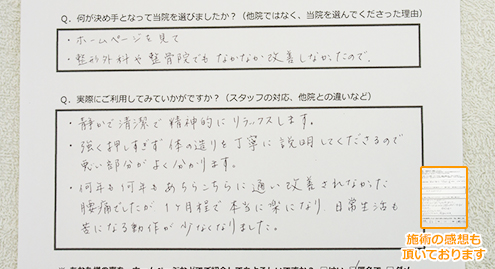 Q. 何が決め手となって当院を選びましたか？（他院ではなく、当院を選んでくださった理由）
・ホームページを見て
・整形外科や整骨院でもなかなか改善しなかたので、
Q. 実際にご利用してみていかがですか？（スタッフの対応、他院との違いなど）
・静かで清潔で精神的にリラックスします。
・強く押しすぎず体の造りを丁寧に説明してくださるので
悪い部分がよく分かります。
・何年も何年もあちらこちらに通い改善されなかた
腰痛でしたが1ヶ月程で本当に楽になり、日常生活も
苦になる動作が少なくなりました。
施術の感想も
頂いております